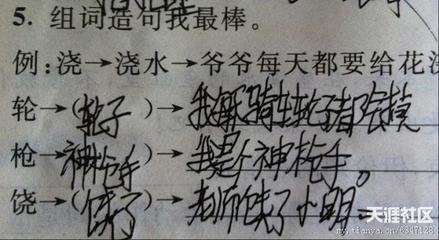 5. 组词造句我最棒。
例:浇→浇水→爷爷每天都要给花
轮→(轮子)→我每天骑车轮子都
枪→神枪手)→我是个神枪手。
饶→(饶了)→老师饶了小明。
天涯社区